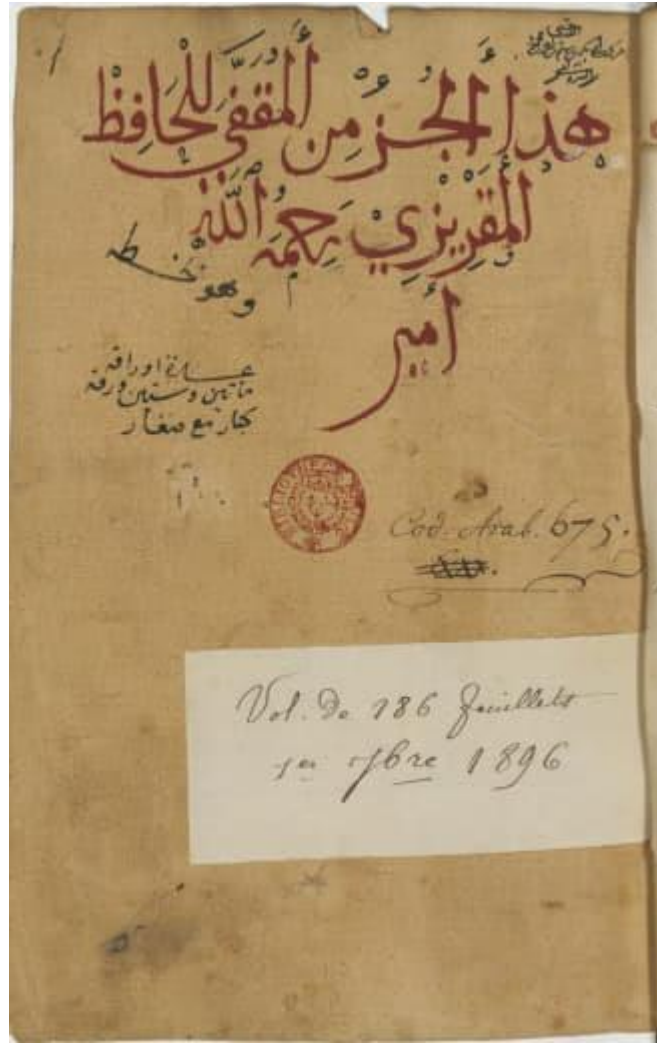 هَذا الجُزْءُ مِن المُقَفَّى لِلْحَافِظْ
المَقْرِيْزِيْ رَحِمَهُ اللَّهُ
وهو خطه
أمير
عدة اوراقه
مأتين وستين ورقه
كبار مع صغار
Cod. Arab. 675.
Vol. de 186 feuillets
1er 7bre 1896